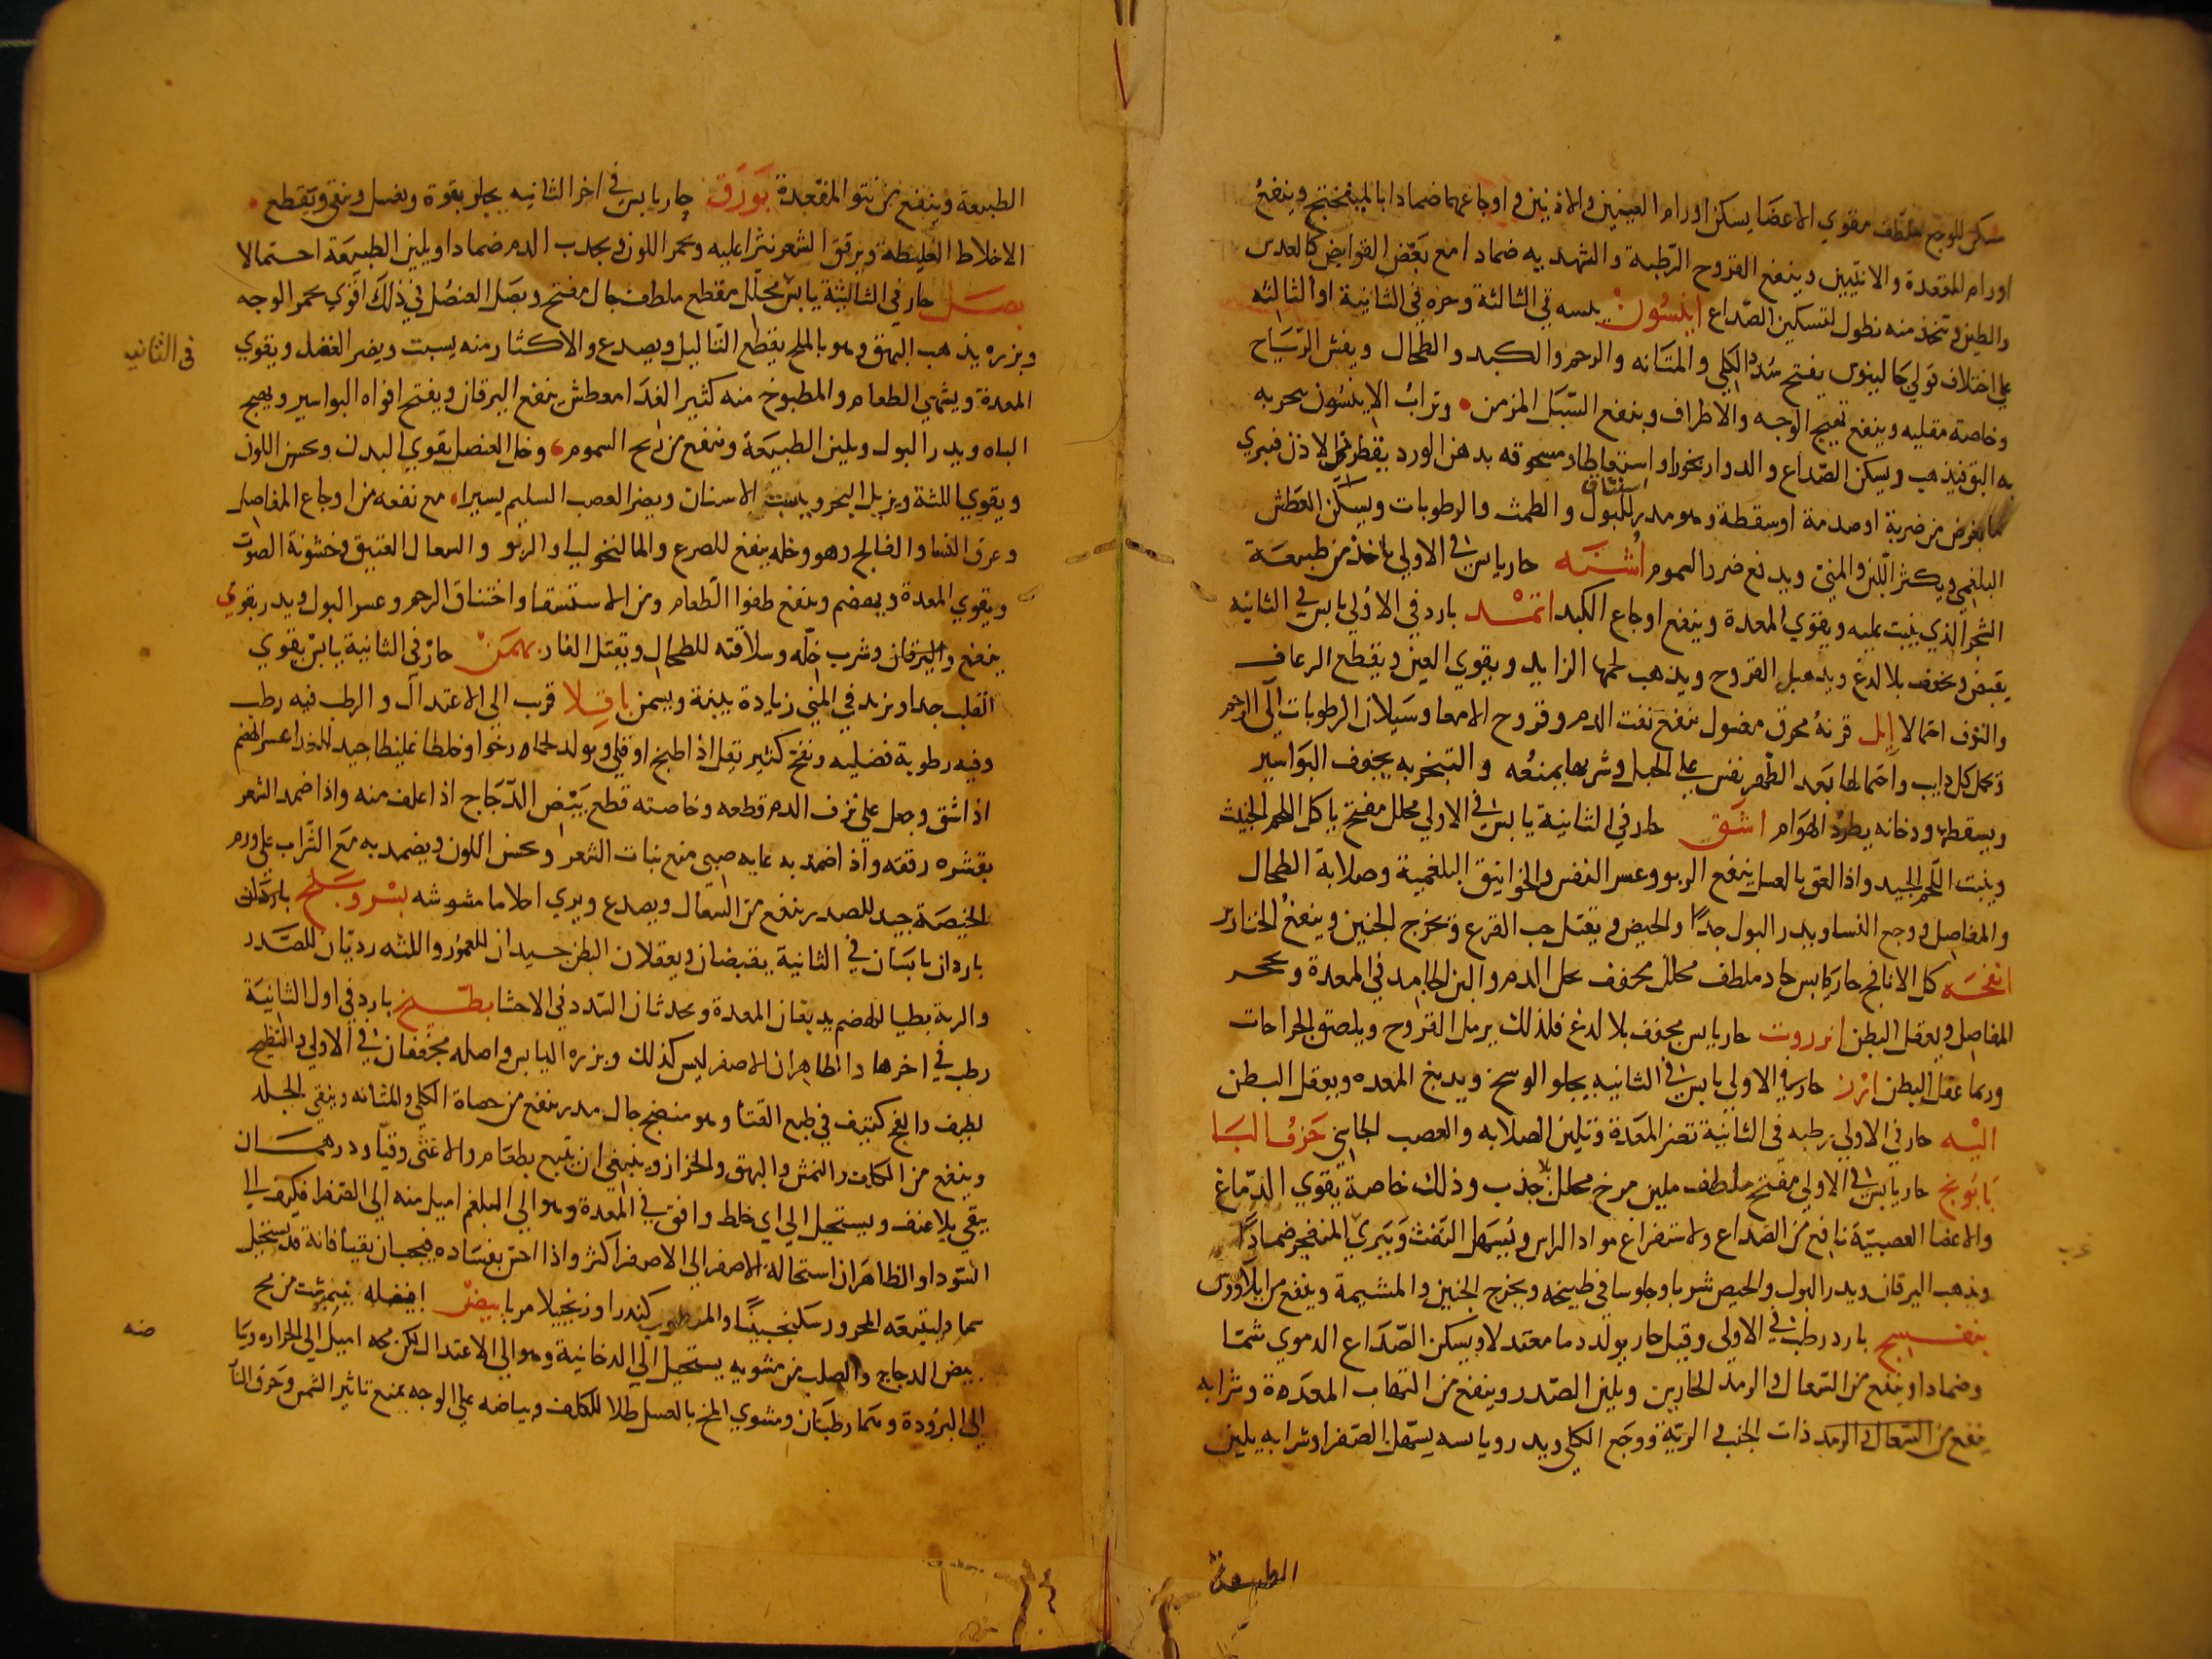 مسكن للوجع ملطف مقوي الاعضا يسكن اورام العينين والاذنين واوجاعهما ضمادا بالميفختج وينفع
اورام المقعدة والانثيين وينفع القروح الرطبة والشهدية ضمادا مع بعض القوابض كالعدس
والطين وتتخذ منه نطول لتسكين الصداع انيسون يبسه في الثالثة وحره في الثانية او الثالثه
على اختلاف قولي جالينوس يفتح سدد الكلي والمثانه والرحم والكبد والطحال ويفش الرياح
وخاصة مقليه وينفع تهيج الوجه والاطراف وينفع السبل المزمن وتراب الانيسون بحربه
به البق فيذهب ويسكن الصداع والدوار بخورا واستعاطا ومسحوقه بدهن الورد يقطر في الاذن فيبري
ما يعرض من ضربة او صدمة او سقطة وهو مدر للبول والطمث والرطوبات ويسكن العطش
البلغمي ويكثر اللبن والمني ويدفع ضرر السموم اشنه حار يابس في الاولي ياخذ من طبيعة
الشجر الذي ينبت عليه ويقوي المعدة وينفع اوجاع الكبد اثمد بارد في الاولي يابس في الثانيه
يقبض ويجفف بلا لدغ ويدمل القروح ويذهب لحمها الزايد ويقوي العين ويقطع الرعاف
والنزف احتمالا إيل قرنه محرق مغسول ينفع نفث الدم وقروح الامعا وسيلان الرطوبات الي الرحم
وكل ذايب واحتمالها بعد الطهر نفس على الحبل وشربها يمنعه والتبخر به يجفف البواسير
ويسقطها ودخانه يطرد الهوام اشق حار في الثانية يابس في الاولي محلل مفتح ياكل اللحم الخبيث
وينبت اللحم الجيد واذا لعق بالعسل ينفع الربو وعسر النفس والخوانيق البلغمية وصلابة الطحال
والمفاصل ووجع النسا ويدر البول جدًا والحيض ويقتل حب القرع وتخرج الجنين وينفع الخنازير
انفحه كل الانافح حار يابس حاد ملطف محلل مجفف يحل الدم واللبن الجامد في المعدة
المفاصل ويعقل البطن انزروت حار يابس مجفف بلا لدغ فلذلك يدمل القروح ويلصق الجراحات
وربما عقل البطن ارز حار في الاولي يابس في الثانيه يجلو الوسخ ويدبغ المعده ويعقل البطن
اليه حار في الاولي رطبه في الثانية تضر المعدة وتلين الصلابه والعصب الجاسي حرف البا
بابونج حار يابس في الاولي مفتح ملطف ملين مرخ محلل بلا جذب وذلك خاصة يقوي الدماغ
والاعضا العصبية نافع من الصداع ولاستفراغ مواد الراس ويسهل النفث ويبري المنفجر ضمادًا
ويذهب اليرقان ويدر البول والحيض شربا وجلوسا في طبيخه ويخرج الجنين والمشيمة وينفع من ايلاوس
بنفسج بارد رطب في الاولي وقيل حار يولد دما معتدلا ويسكن الصداع الدموي شما
وضمادا وينفع من السعال والرمد الحارين ويلين الصدر وينفع من التهاب المعدة وشرابه
ينفع من السعال والرمد ذات الجنب والرية ووجع الكلي ويدر ويابسه يسهل الصفرا وشرابه يلين
الطبيعة
الطبيعة وينفع من نتو المقعدة بورق حار يابس في اخر الثانيه يجلو بقوة ويغسل وينقي ويقطع
الاخلاط الغليظة ويرقق الشعر نثرا عليه ويحمر اللون ويجذب الدم ضمادا ويلين الطبيعة احتمالا
بصل حار في الثالثة يابس محلل مقطع ملطف جال مفتح وبصل العنصل في ذلك اقوي يحمر الوجه
وبزره يذهب البهق وهو بالملح يقطع الثاليل ويصدع والاكثار منه يسبت ويضر العقل ويقوي
في الثانيه
المعدة ويشهي الطعام والمطبوخ منه كثير الغدا معطش ينفع اليرقان ويفتح افواه البواسير ويهيج
الباه ويدر البول ويلين الطبيعة وينفع من ريح السموم وخل العنصل يقوي البدن ويحسن اللون
ويقوي اللثة ويزيل البخر ويثبت الاسنان ويضر العصب السليم يسيرا مع نفعه من اوجاع المفاصل
وعرق النسا والفالج وهو وخله ينفع للصرع والمالنخوليا والربو والسعال العتيق وخشونة الصوت
ويقوي المعدة ويهضم وينفع طفوا الطعام ومن الاستسقا واختناق الرحم وعسر البول ويدر بقوي
ينفع واليرقان وشرب خله وسلاقته للطحال ويقتل الفار بهمن حار في الثانية يابس يقوي
القلب جدا ويزيد في المني زيادة بينة ويسمن باقلا قرب الي الاعتدال والرطب فيه رطب
وفيه رطوبة فضليه ونفخ كثير يقل اذا طبخ او قلي ويولد لحما رخوا وخلطا غليظا جيد الغذا عسر الهضم
اذا شق وجعل علي نزف الدم قطعه وخاصته قطع بيض الدجاج اذا علف منه واذا ضمد الشعر
بقشره رققه واذا ضمد به عانه صبي منع نبات الشعر ويحسن اللون ويضمد به مع الشراب علي ورم
الخيصة جيد للصدر ينفع من السعال ويصدع ويري احلاما مشوشه بسر وبلح
باردان يابسان في الثانية يقبضان ويعقلان البطن جيدان للعمور واللثه رديان للصدر
والرية بطيا الهضم يدبغان المعدة ويحدثان السدد في الاحشا بطيخ بارد في اول الثانية
رطب في اخرها والظاهر ان الاصفر ليس كذلك وبزره اليابس واصله مجففان في الاولي والنضيج
لطيف والفج كثيف في طبع القثا وهو منضج جال مدر ينفع من حصاة الكلي والمثانه وينقي الجلد
وينفع من الكلف والنمش والبهق والحزاز وينبغي ان يتبع بطعام والا غثي وقيا ودرهمان
يقي بلا عنف ويستحيل الي اي خلط وافق في المعدة وهو الي البلغم اميل منه الي الصفرا فكيف الي
السودا والظاهر ان استحالة الاصفر الي الاصفرا اكثر واذا احس بفساده فيجب ان يقيا فانه قد يستحيل
سما وليتبعه المحرور سكنجبينًا والمرطوب كندرا او زنجبيلا مربا بيض افضله نيمبرشت من مح
بيض الدجاج والصلب من مشويه يستحيل الي الدخانية وهو الي الاعتدال لكن محه اميل الي الحراره
الي البرودة وهما رطبان ومشوي المخ بالعسل طلا للكلف وبياضه علي الوجه يمنع تاثير الشمس وحرق النار